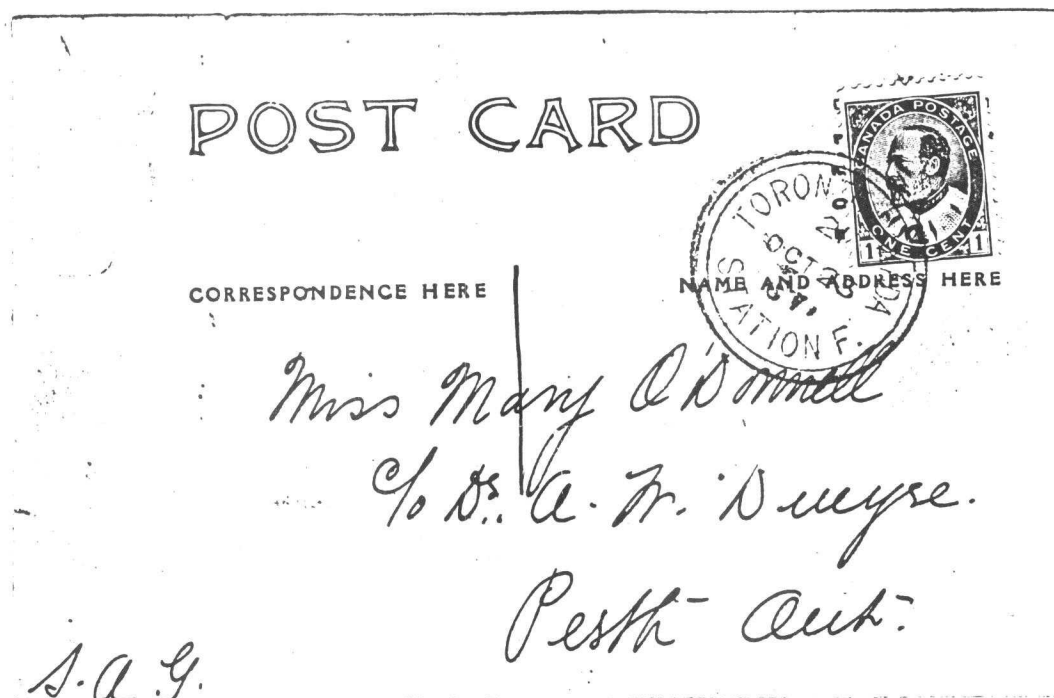 POST CARD
CANADA POSTAGE
ONE CENT
1 1
TORON DA
OCT 22
STATION F.
CORRESPONDENCE HERE
NAME AND ADDRESS HERE
Miss Mary O'Donnell
c/o Dr. A. W. Dwyre.
Perth Ont.
S. A. G.